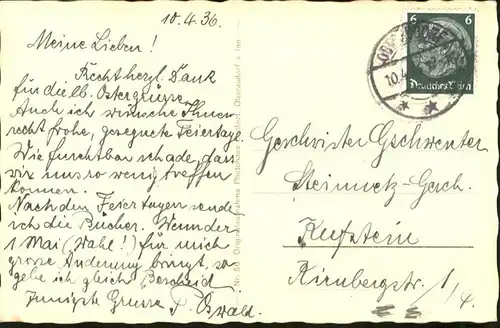 10.4.36.
Meine Lieben!
Recht herzl. Dank
für die lb. Ostergrüsse.
Auch ich wünsche Ihnen
recht frohe, gesegnete Feiertage.
Wie furchtbar schade, dass
wir uns so wenig treffen
können.
Nach den Feiertagen sende
ich die Bücher. Wenn der
1 Mai (Wahl!) für mich
grosse Änderung bringt, so
gebe ich gleich Bescheid
Innigste Grüsse P. Oswald.
6 6
Deutsches Reich
10.4
Geschwister Gschwenter
Steinmetz-Gesch.
Kufstein
Kirnbergstr. 1/4